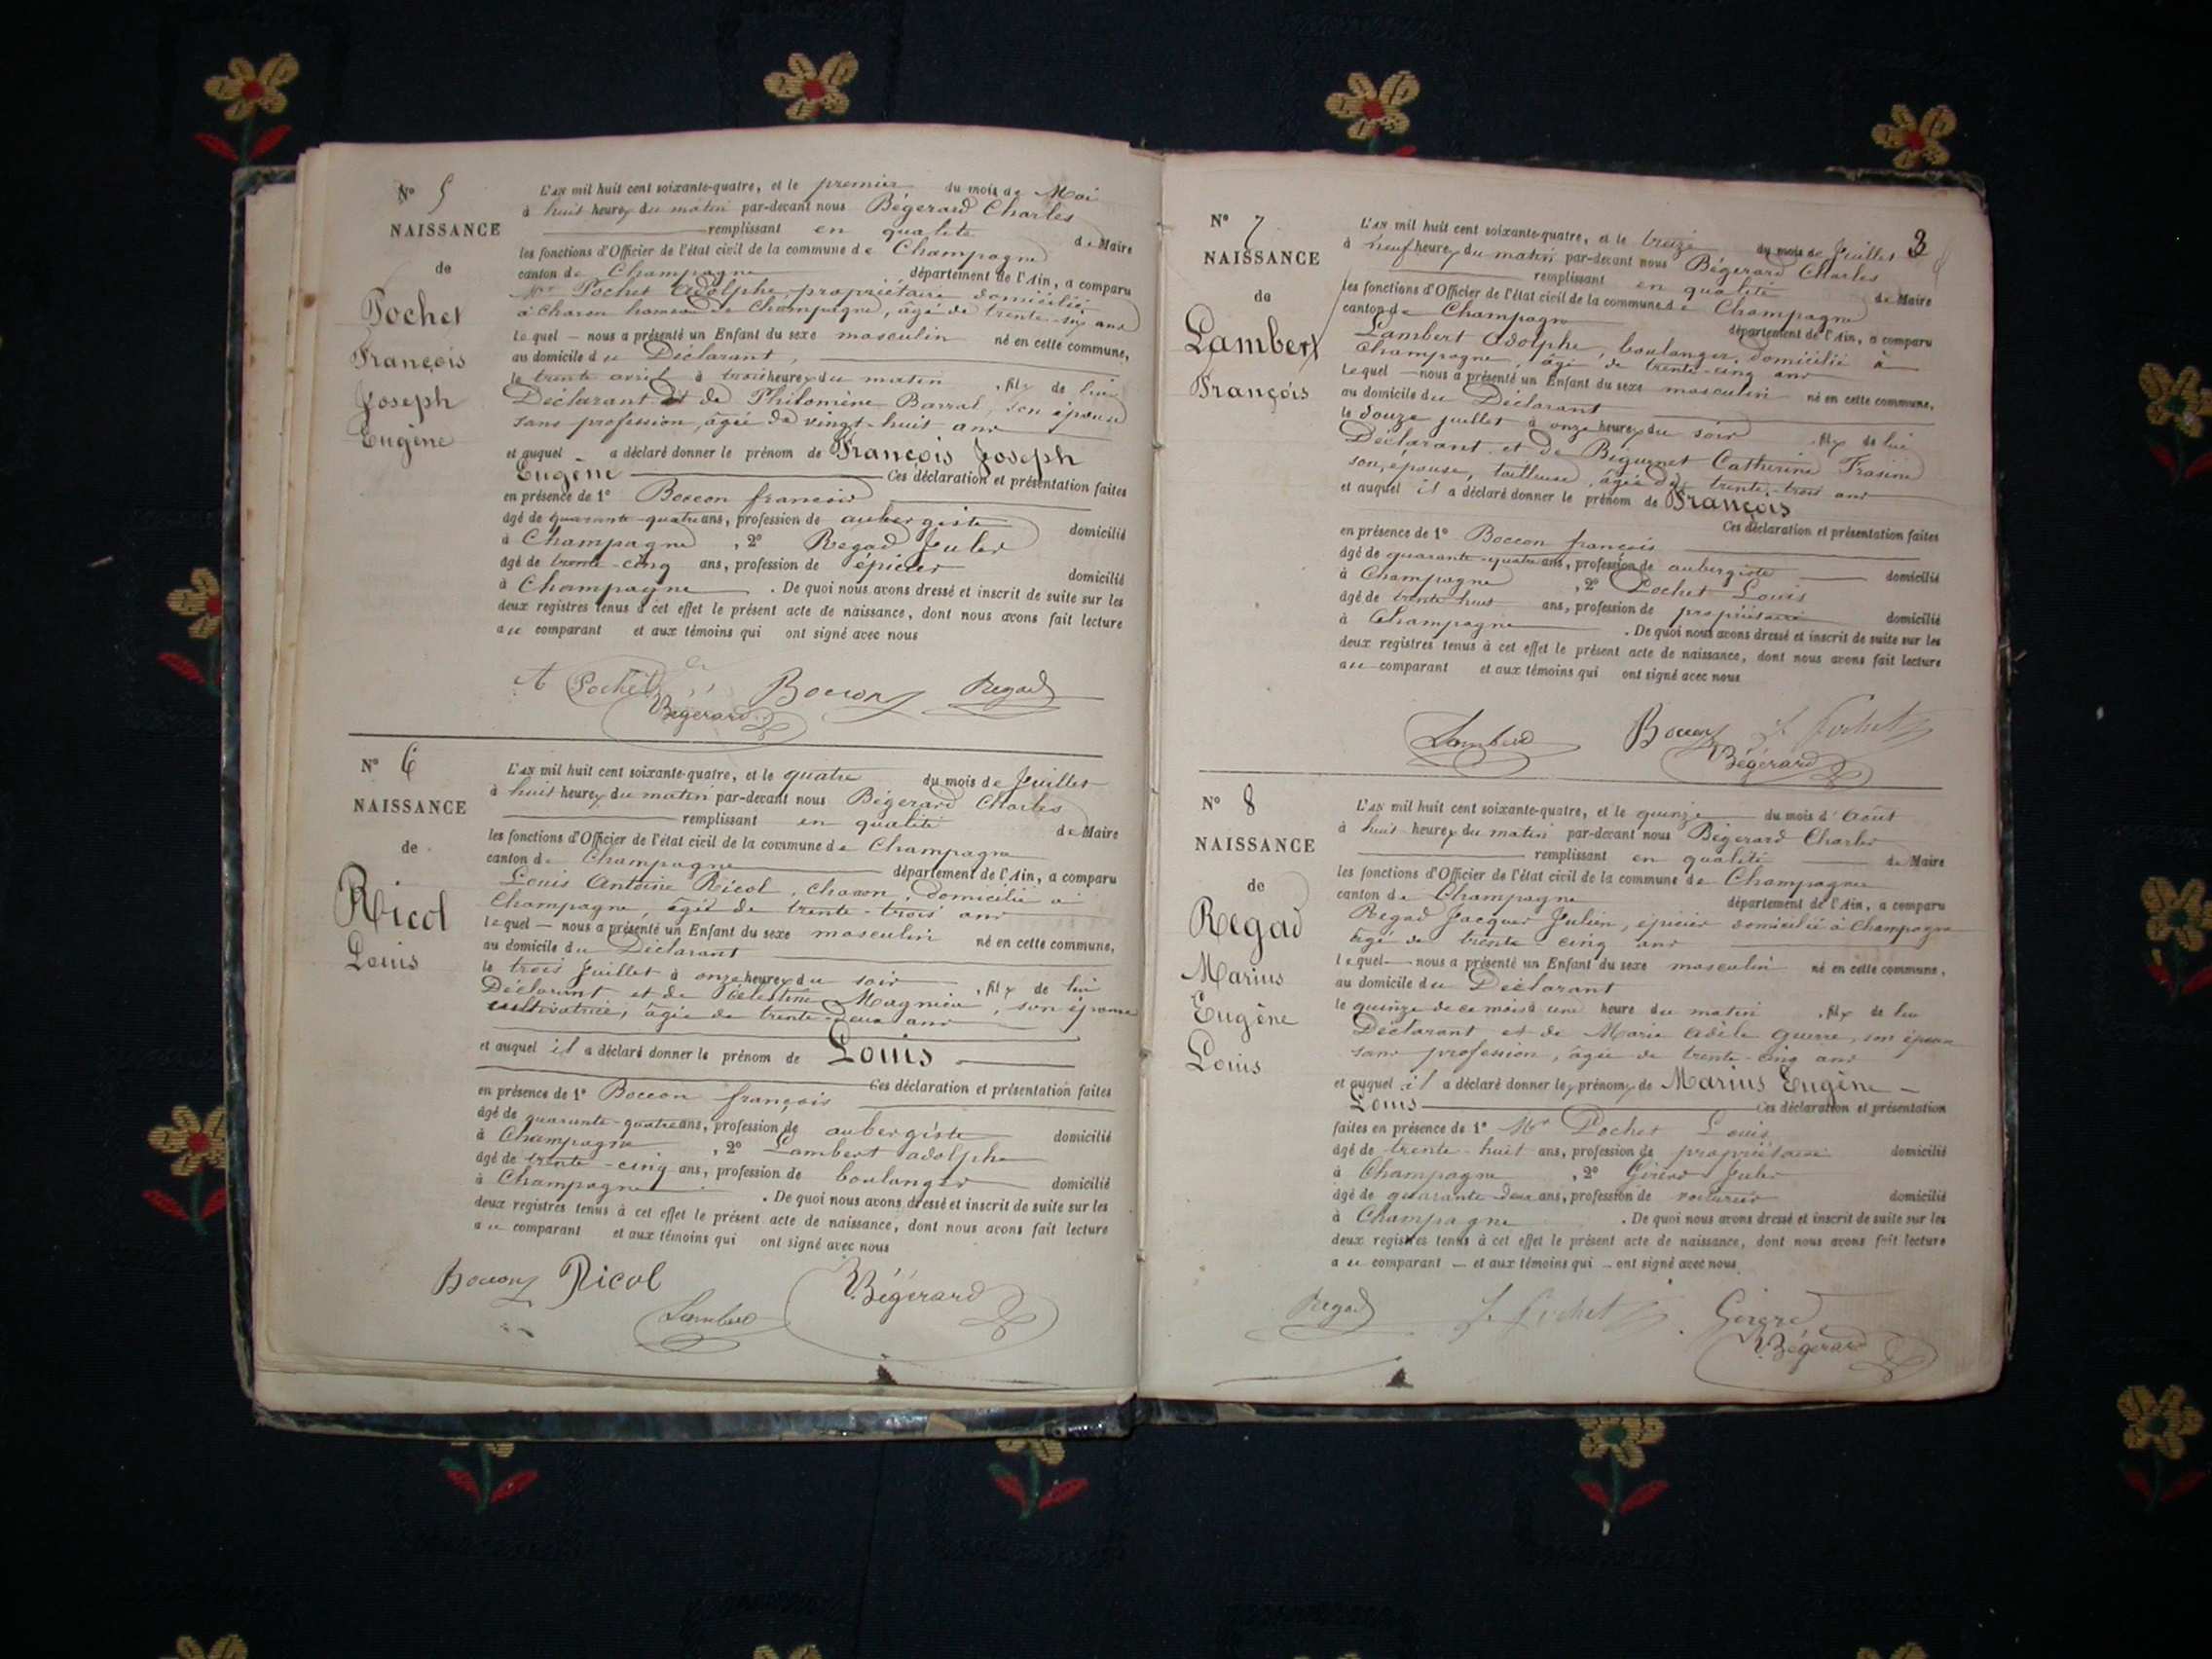 N° 5
NAISSANCE
de
Pochet
François
Joseph
Eugène
L'AN mil huit cent soixante-quatre, et le premier du mois de Mai
à huit heures du matin par-devant nous Bégerard Charles
remplissant en qualité de Maire
les fonctions d'Officier de l'état civil de la commune de Champagne
canton de Champagne département de l'Ain, a comparu
Mr Pochet Adolphe, propriétaire domicilié
à Charon hameau de Champagne, âgé de trente-six ans
lequel nous a présenté un Enfant du sexe masculin né en cette commune,
au domicile du Déclarant,
le trente avril à trois heures du matin, fils de lui
Déclarant et de Philomène Barral, son épouse
sans profession, âgée de vingt-huit ans
et auquel a déclaré donner le prénom de François Joseph
Eugène Ces déclaration et présentation faites
en présence de 1° Boccon françois
âgé de quarante-quatre ans, profession de aubergiste domicilié
à Champagne, 2° Regad Jules
âgé de trente-cinq ans, profession de épicier domicilié
à Champagne. De quoi nous avons dressé et inscrit de suite sur les
deux registres tenus à cet effet le présent acte de naissance, dont nous avons fait lecture
au comparant et aux témoins qui ont signé avec nous
A Pochet Boccon Regad
Bégerard
N° 6
NAISSANCE
de
Ricol
Louis
L'AN mil huit cent soixante-quatre, et le quatre du mois de Juillet
à huit heures du matin par-devant nous Bégerard Charles
remplissant en qualité de Maire
les fonctions d'Officier de l'état civil de la commune de Champagne
canton de Champagne département de l'Ain, a comparu
Louis Antoine Ricol, charron, domicilié à
Champagne, âgé de trente-trois ans
lequel nous a présenté un Enfant du sexe masculin né en cette commune,
au domicile du Déclarant
le trois Juillet à onze heures du soir, fils de lui
Déclarant et de Célestine Magnien, son épouse
cultivatrice, âgée de trente-deux ans
et auquel il a déclaré donner le prénom de Louis
Ces déclaration et présentation faites
en présence de 1° Boccon françois
âgé de quarante-quatre ans, profession de aubergiste domicilié
à Champagne, 2° Lambert adolphe
âgé de trente-cinq ans, profession de boulanger domicilié
à Champagne. De quoi nous avons dressé et inscrit de suite sur les
deux registres tenus à cet effet le présent acte de naissance, dont nous avons fait lecture
au comparant et aux témoins qui ont signé avec nous
Boccon Ricol Bégerard
Lambert
3
N° 7
NAISSANCE
de
Lambert
François
L'AN mil huit cent soixante-quatre, et le treize du mois de Juillet
à neuf heures du matin par-devant nous Bégerard Charles
remplissant en qualité de Maire
les fonctions d'Officier de l'état civil de la commune de Champagne
canton de Champagne département de l'Ain, a comparu
Lambert Adolphe, boulanger, domicilié à
Champagne, âgé de trente-cinq ans
lequel nous a présenté un Enfant du sexe masculin né en cette commune,
au domicile du Déclarant
le douze juillet à onze heures du soir, fils de lui
Déclarant et de Béguinet Catherine
son épouse, tailleuse, âgée de trente-trois ans
et auquel il a déclaré donner le prénom de François
Ces déclaration et présentation faites
en présence de 1° Boccon françois
âgé de quarante-quatre ans, profession de aubergiste domicilié
à Champagne, 2° Pochet Louis
âgé de trente-huit ans, profession de propriétaire domicilié
à Champagne. De quoi nous avons dressé et inscrit de suite sur les
deux registres tenus à cet effet le présent acte de naissance, dont nous avons fait lecture
au comparant et aux témoins qui ont signé avec nous
Lambert Boccon L. Pochet
Bégerard
N° 8
NAISSANCE
de
Regad
Marius
Eugène
Louis
L'AN mil huit cent soixante-quatre, et le quinze du mois d'Août
à huit heures du matin par-devant nous Bégerard Charles
remplissant en qualité de Maire
les fonctions d'Officier de l'état civil de la commune de Champagne
canton de Champagne département de l'Ain, a comparu
Regad Jacques Julien, épicier domicilié à Champagne
âgé de trente cinq ans
lequel nous a présenté un Enfant du sexe masculin né en cette commune,
au domicile du Déclarant
le quinze de ce mois à une heure du matin, fils de lui
Déclarant et de Marie Adèle Guerre, son épouse
sans profession, âgée de trente-cinq ans
et auquel il a déclaré donner les prénoms de Marius Eugène
Louis Ces déclaration et présentation
faites en présence de 1° Mr Pochet Louis
âgé de trente-huit ans, profession de propriétaire domicilié
à Champagne, 2° Girerd Jules
âgé de quarante deux ans, profession de voiturier domicilié
à Champagne. De quoi nous avons dressé et inscrit de suite sur les
deux registres tenus à cet effet le présent acte de naissance, dont nous avons fait lecture
au comparant et aux témoins qui ont signé avec nous
Regad L. Pochet Girerd
Bégerard